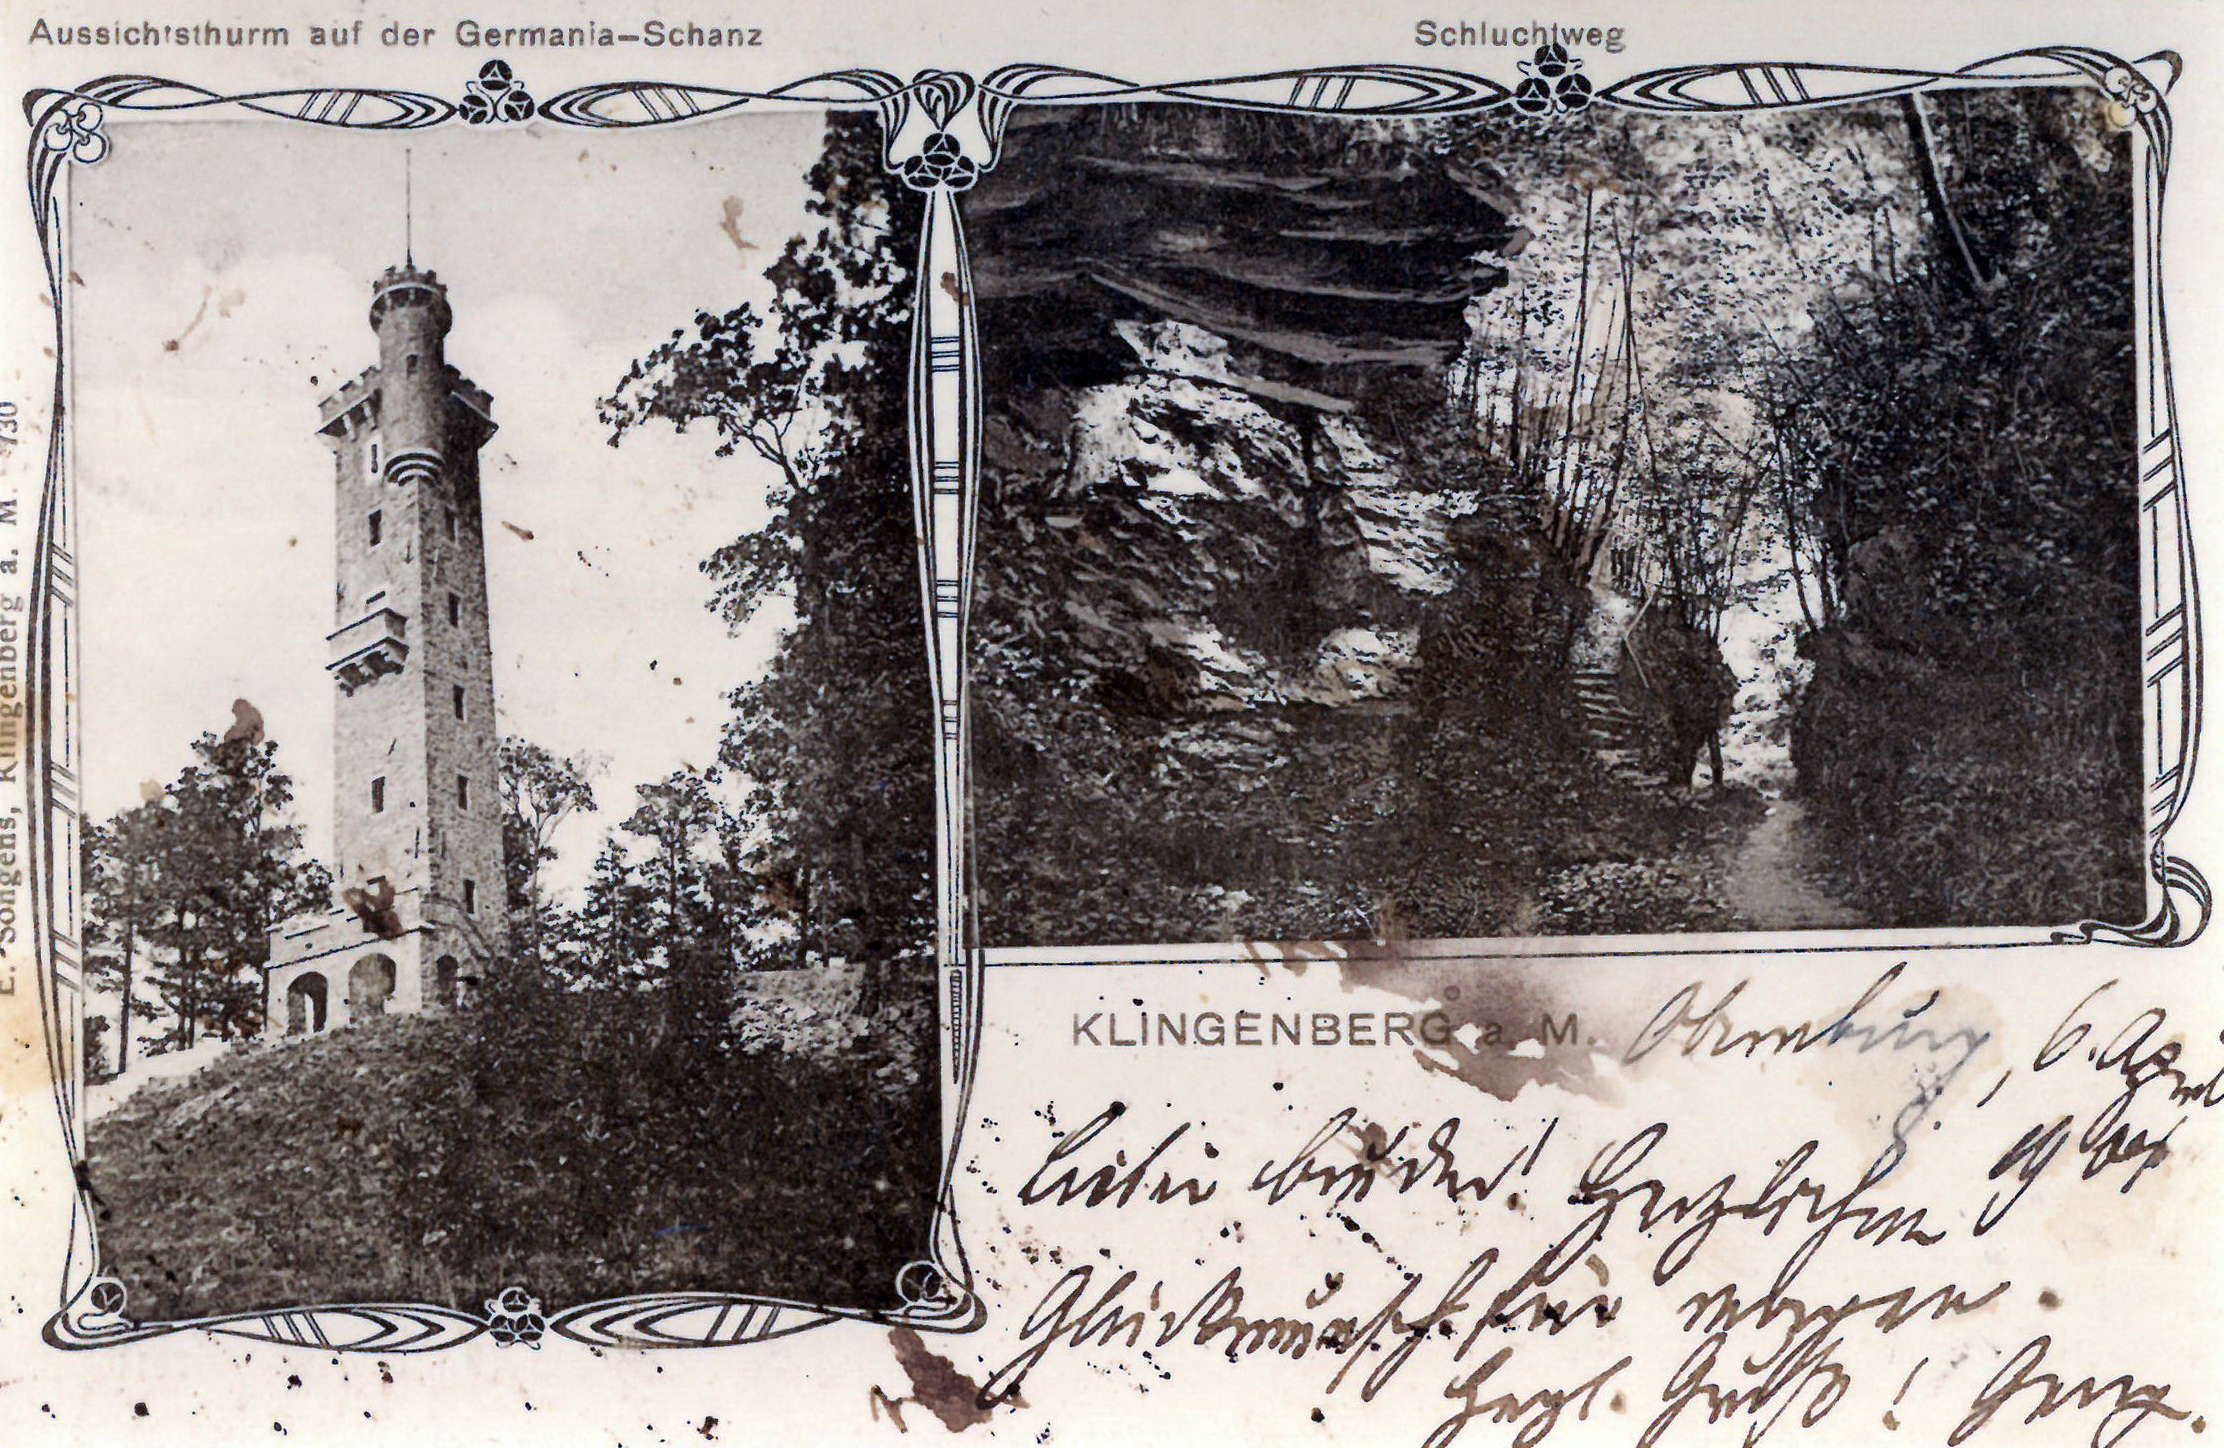 Aussichtsthurm auf der Germania-Schanz
Schluchtweg
E. Songens, Klingenberg a. M. 730
KLINGENBERG a. M.
Obernburg, 6. April
Lieber Bruder! Herzlichen
Glückwunsch für morgen.
Herzl. Grüße! Georg.